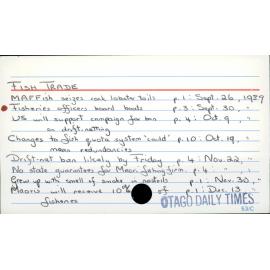 FISH TRADE
MAFFish seizes rock lobster tails p.1: Sept. 26, 1989
Fisheries officers board boats p.3: Sept. 30, "
US will support campaign for ban p.4: Oct. 9, "
on drift-netting
Changes to fish quota system 'could' p.10: Oct. 19, "
mean redundancies
Drift-net ban likely by Friday p.4: Nov. 22, "
No state guarantees for Maori fishing firm p.4: " , "
Grew up with smell of smoke in nostrils p.1: Nov. 30, "
Maoris will receive 10% of p.1: Dec. 13, "
fisheries
OTAGO DAILY TIMES